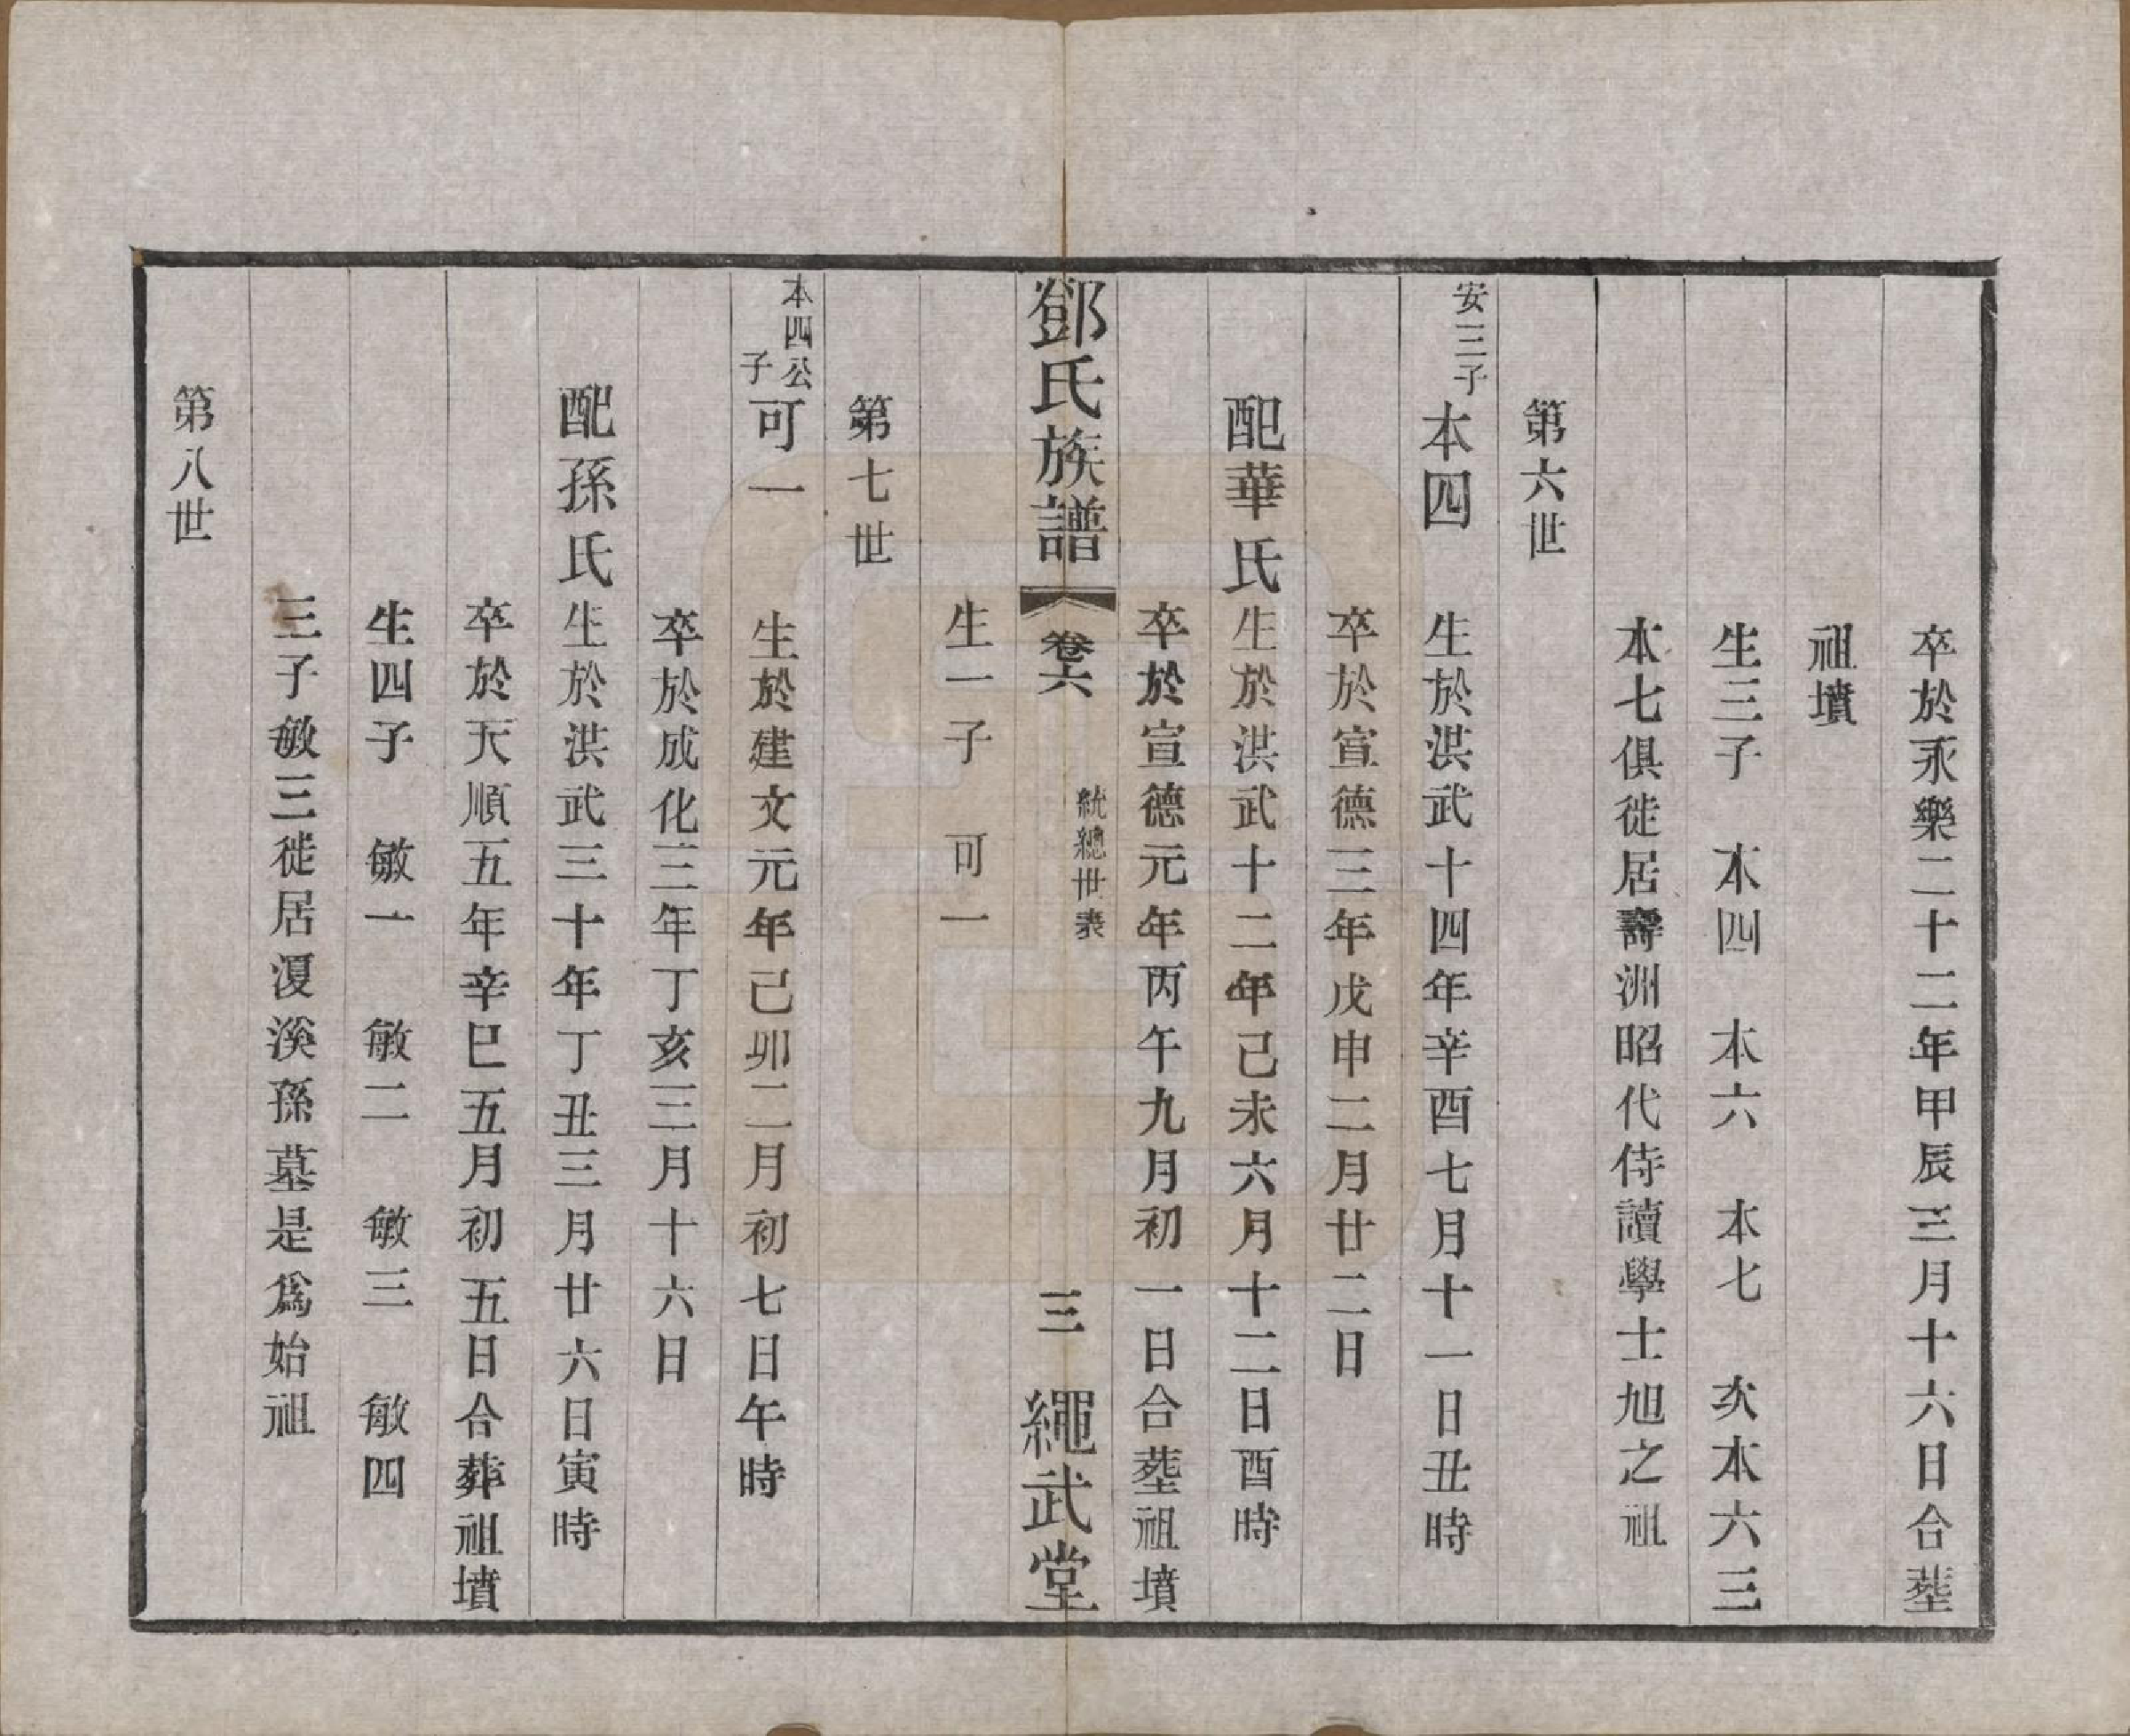 卒於永樂二十二年甲辰三月十六日合塟
祖墳
生三子 本四 本六 本七 次本六三
本七俱徙居壽洲昭代侍讀學士旭之祖
第六世
安三子 本四 生於洪武十四年辛酉七月十一日丑時
卒於宣德三年戊申二月廿二日
配華氏 生於洪武十二年己未六月十二日酉時
卒於宣德元年丙午九月初一日合塟祖墳
鄧氏族譜 卷六 統總世表 三 繩武堂
生一子 可一
第七世
本四公子 可一 生於建文元年己卯二月初七日午時
卒於成化三年丁亥三月十六日
配孫氏 生於洪武三十年丁丑三月廿六日寅時
卒於天順五年辛巳五月初五日合葬祖墳
生四子 敏一 敏二 敏三 敏四
三子敏三徙居溭溪孫墓是爲始祖
第八世